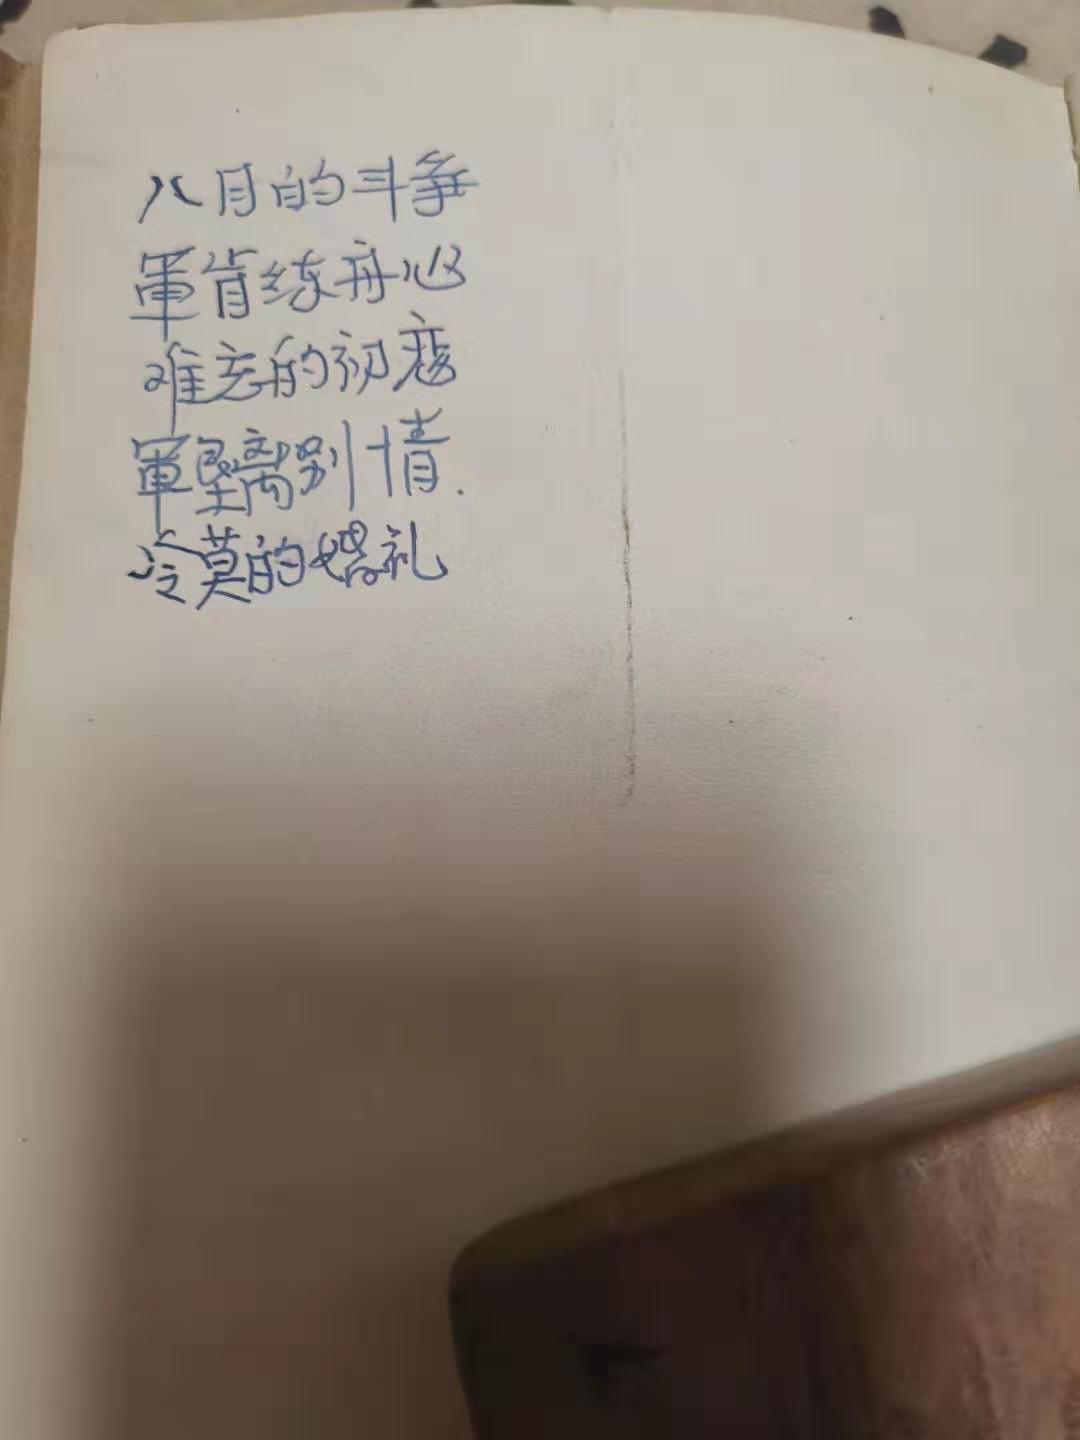 八月的斗争
軍肯练丹心
难忘的初恋
軍垦离别情.
冷莫的婚礼